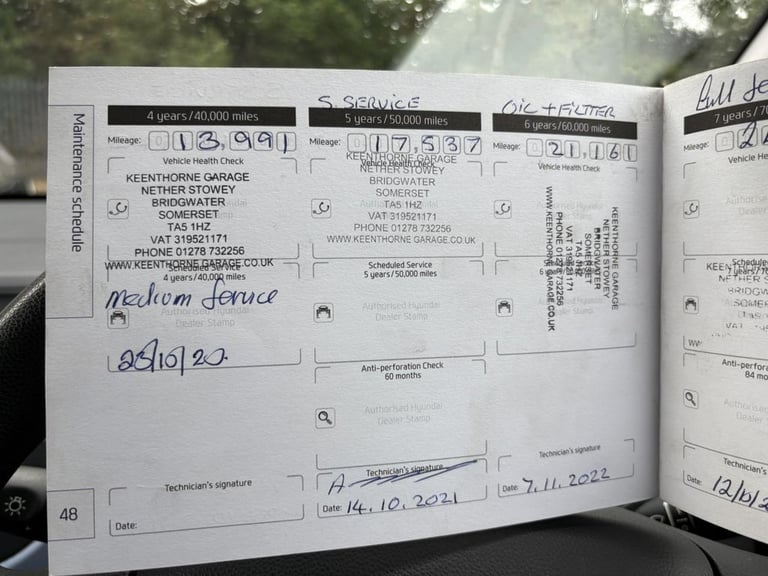 Maintenance schedule
48
4 years/40,000 miles
Mileage: 0 13,991
Vehicle Health Check
KEENTHORNE GARAGE
NETHER STOWEY
BRIDGWATER
SOMERSET
TA5 1HZ
VAT 319521171
PHONE 01278 732256
WWW.KEENTHORNE GARAGE.CO.UK
Scheduled Service
4 years/40,000 miles
medium Service
Authorised Hyundai
Dealer Stamp
23/10/20.
Technician's signature
Date:
S. SERVICE
5 years/50,000 miles
Mileage: 0 17,537
Vehicle Health Check
KEENTHORNE GARAGE
NETHER STOWEY
BRIDGWATER
SOMERSET
TA5 1HZ
VAT 319521171
PHONE 01278 732256
WWW.KEENTHORNE GARAGE.CO.UK
Scheduled Service
5 years/50,000 miles
Authorised Hyundai
Dealer Stamp
Anti-perforation Check
60 months
Authorised Hyundai
Dealer Stamp
Technician's signature
Date: 14.10.2021
OIL + FILTTER
6 years/60,000 miles
Mileage: 0 21,161
Vehicle Health Check
KEENTHORNE GARAGE
NETHER STOWEY
BRIDGWATER
SOMERSET
TA5 1HZ
VAT 319521171
PHONE 01278 732256
WWW.KEENTHORNE GARAGE.CO.UK
Technician's signature
Date: 7.11.2022
Full Se
7 years/70
Mileage:
Vehicle He
Authorised
Dealer
Scheduled
7 years/70
KEENTHO
NETHER S
BRIDGW
SOMER
Anti-perfora
84 mo
Authorised
Dealer
Technician's
Date: